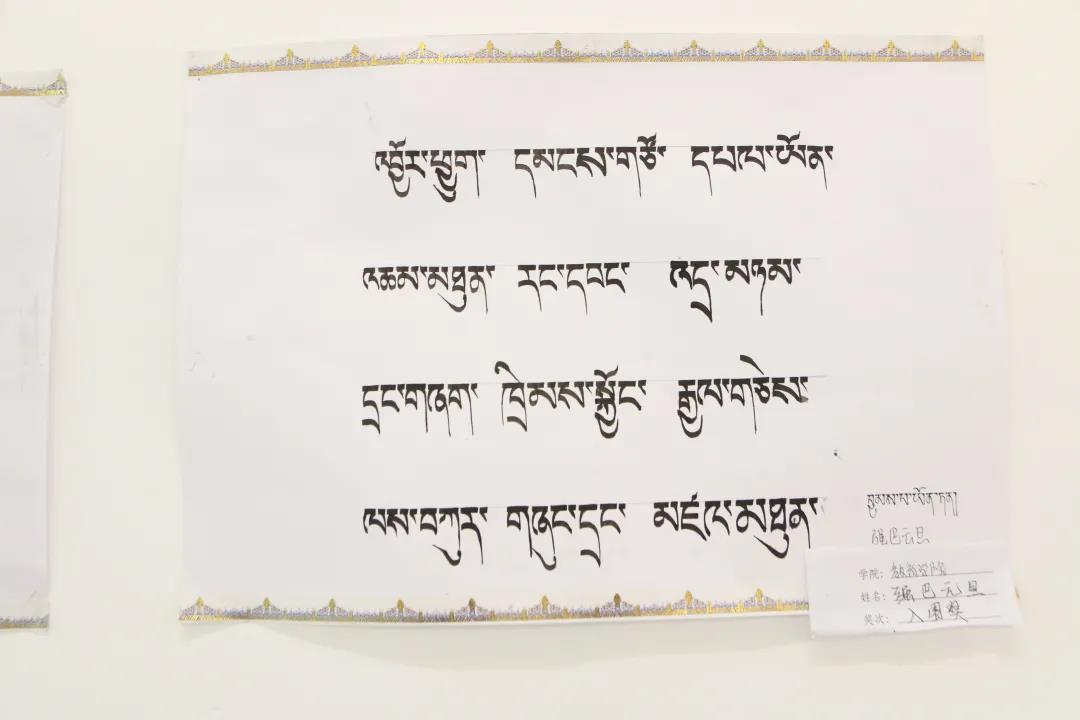 འབྱོར་ཕྱུག་ དམངས་གཙོ་ དཔལ་ཡོན་
འཆམ་མཐུན་ རང་དབང་ འདྲ་མཉམ་
དྲང་གཞག་ ཁྲིམས་སྐྱོང་ རྒྱལ་གཅེས་
ལས་བཀུར་ གཞུང་དྲང་ མཛའ་མཐུན་
བྱམས་པ་ཡོན་ཏན།
强巴云旦
学院：教育学院
姓名：强巴元旦
奖次：入围奖